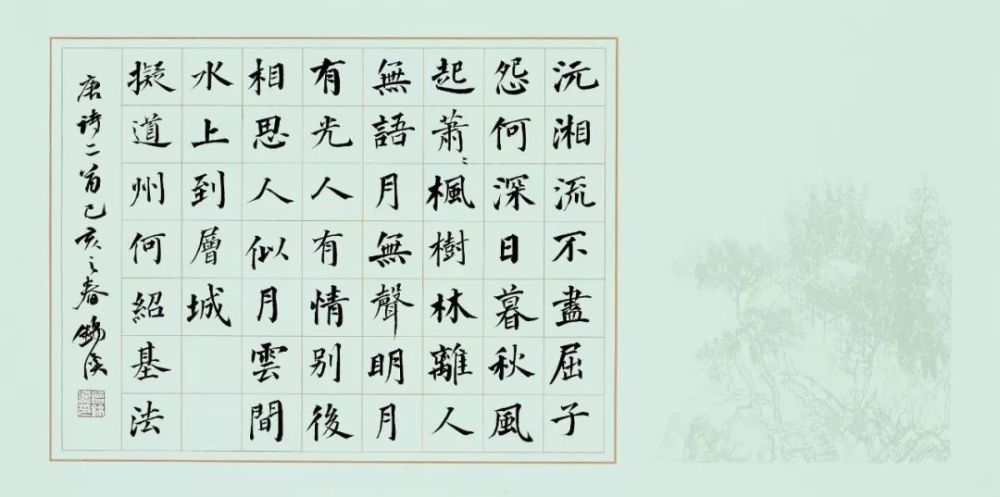 沅湘流不盡屈子
怨何深日暮秋風
起蕭〻楓樹林離人
無語月無聲明月
有光人有情别後
相思人似月雲間
水上到層城
擬道州何紹基法
唐诗二首己亥之春